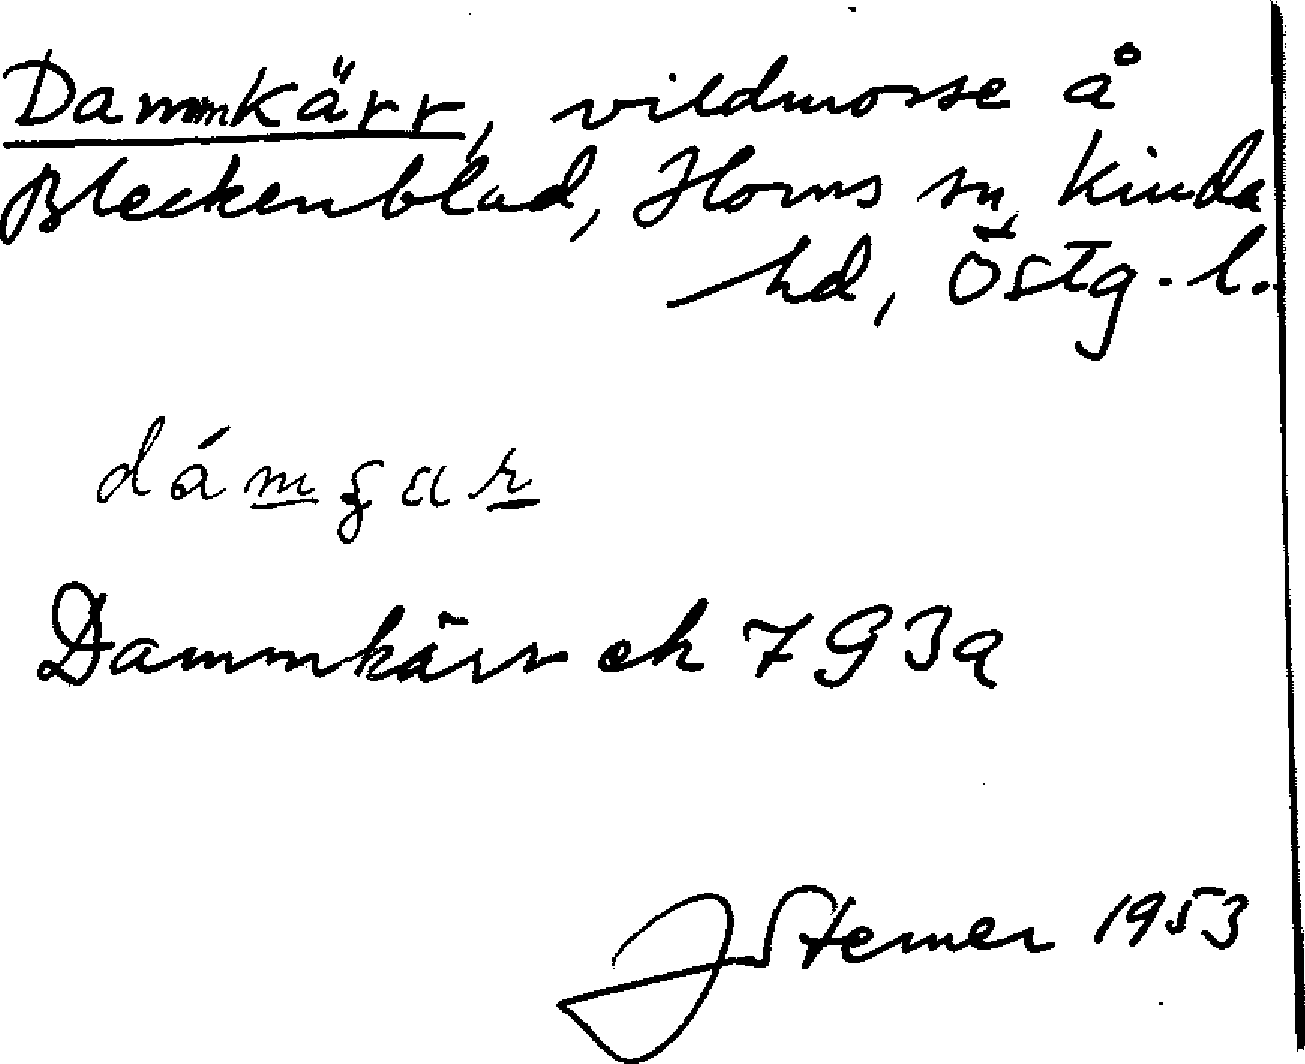 Dammkärr, vildmosse å
Bleckenblad, Horns sn, Kinda
hd, Östg. l.
Dammkärr ek 7G3a
J Sterner 1953